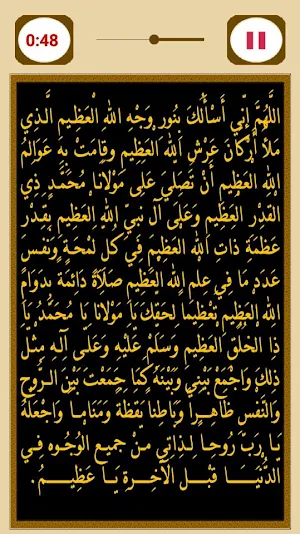 0:48
اللَّهُمَّ إِنِّي أَسْأَلُكَ بِنُورِ وَجْهِ اللهِ الْعَظِيمِ الَّذِي
مَلَأَ أَرْكَانَ عَرْشِ اللهِ العَظِيمِ وَقَامَتْ بِهِ عَوَالِمُ
اللهِ العَظِيمِ أَنْ تُصَلِّيَ عَلَى مَوْلَانَا مُحَمَّدٍ ذِي
القَدْرِ العَظِيمِ وَعَلَى آلِ نَبِيِّ اللهِ العَظِيمِ بِقَدْرِ
عَظَمَةِ ذَاتِ اللهِ العَظِيمِ فِي كُلِّ لَمْحَةٍ وَنَفَسٍ
عَدَدَ مَا فِي عِلْمِ اللهِ العَظِيمِ صَلَاةً دَائِمَةً بِدَوَامِ
اللهِ العَظِيمِ تَعْظِيماً لِحَقِّكَ يَا مَوْلَانَا يَا مُحَمَّدُ يَا
ذَا الخُلُقِ العَظِيمِ وَسَلِّمْ عَلَيْهِ وَعَلَى آلِهِ مِثْلَ
ذَلِكَ وَاجْمَعْ بَيْنِي وَبَيْنَهُ كَمَا جَمَعْتَ بَيْنَ الرُّوحِ
وَالنَّفْسِ ظَاهِراً وَبَاطِناً يَقَظَةً وَمَنَاماً وَاجْعَلْهُ
يَا رَبِّ رُوحاً لِذَاتِي مِنْ جَمِيعِ الوُجُوهِ فِي
الدُّنْيَا قَبْلَ الآخِرَةِ يَا عَظِيمُ.